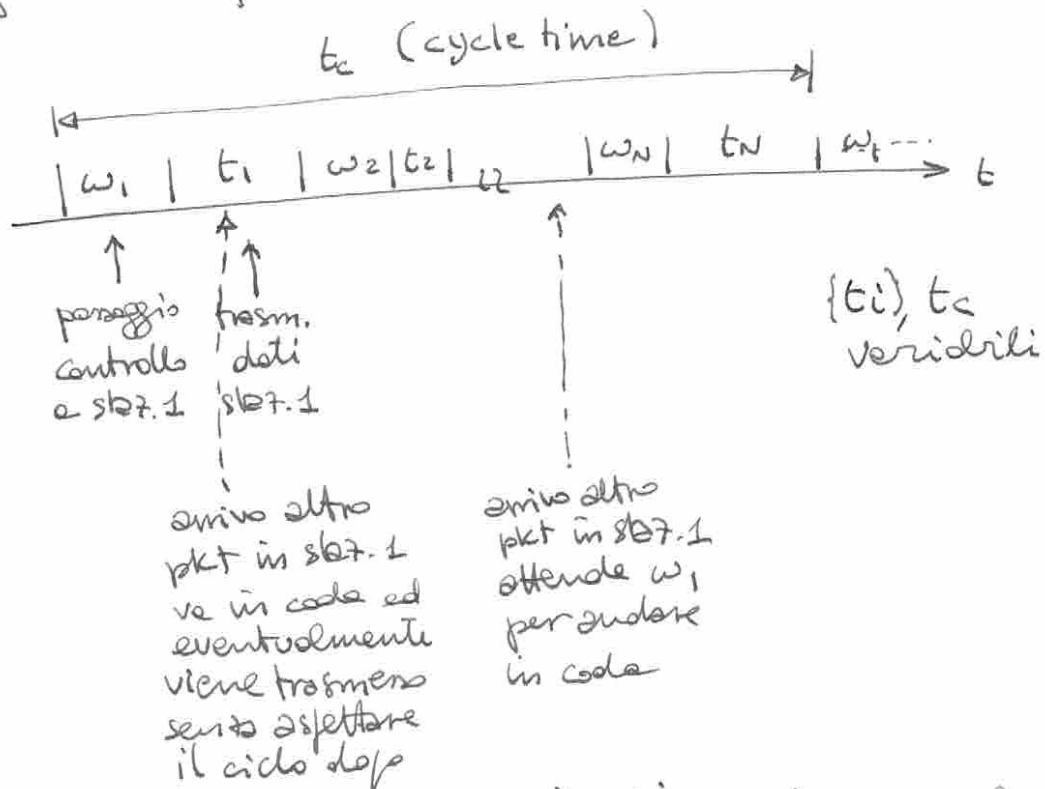 tc (cycle time)
| ω1 | t1 | ω2 | t2 | | ωN | tN | ωt ---- t
passaggio
controllo
a staz. 1
trasm.
dati
staz. 1
{ti}, tc
variabili
arrivo altro
pkt in staz. 1
va in coda ed
eventualmente
viene trasmesso
senza aspettare
il ciclo dopo
arrivo altro
pkt in staz. 1
attende ω1
per andare
in coda